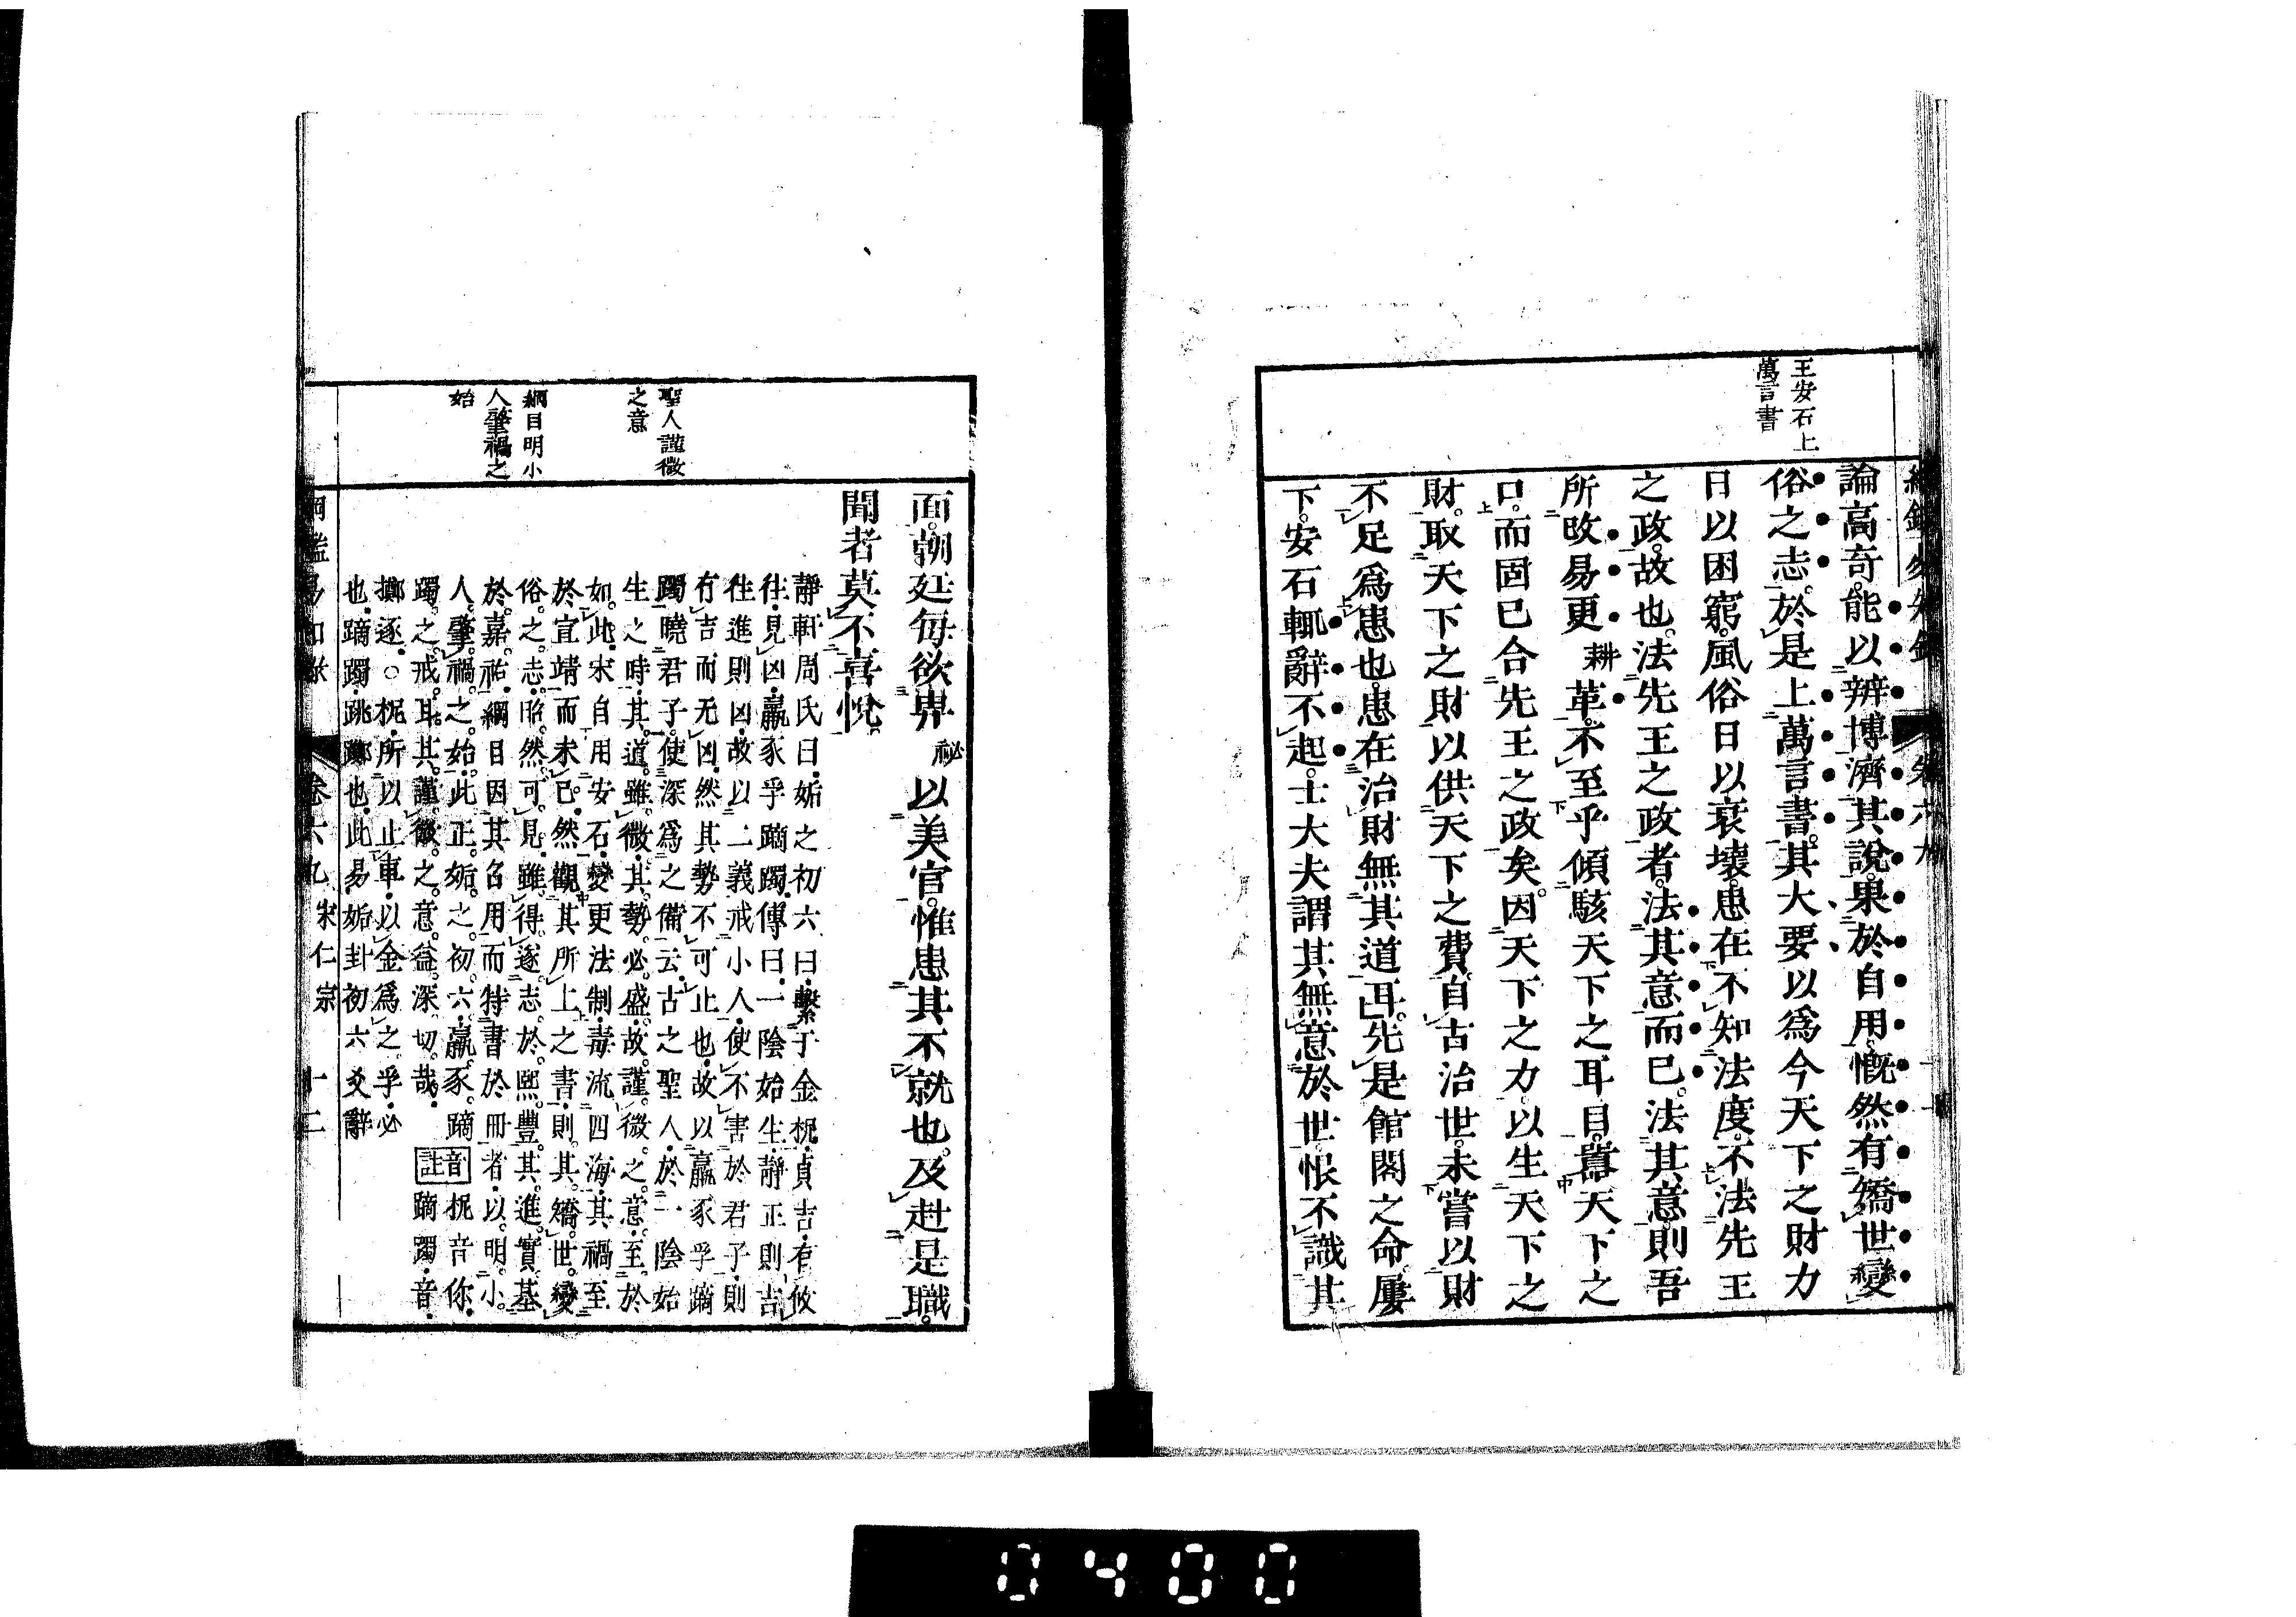 王安石上
萬言書
論高奇。能以辨博濟其說。果於自用。慨然有矯世變
俗之志。於是上萬言書。其大要以爲今天下之財力
日以困窮。風俗日以衰壞。患在不知法度。不法先王
之政。故也。法先王之政者。法其意而已。法其意。則吾
所改易更 耕 革。不至乎傾駭天下之耳目。囂天下之
口。而固已合先王之政矣。因天下之力。以生天下之
財。取天下之財。以供天下之費。自古治世。未嘗以財
不足爲患也。患在治財無其道耳。先是館閣之命。屢
下。安石輒辭不起。士大夫謂其無意於世。恨不識其
聖人謹微
之意
綱目明小
人肇禍之
始
面。朝廷每欲畀 祕 以美官。惟患其不就也。及赴是職。
聞者莫不喜悅。
靜軒周氏曰。姤之初六曰。繫于金柅。貞吉。有攸
往。見凶。羸豕孚蹢躅。傳曰。一陰始生。靜正則吉。
往進則凶。故以二義戒小人。使不害於君子。則
有吉。而无凶。然其勢不可止也。故以羸豕孚蹢
躅。曉君子。使深爲之備云。古之聖人。於一陰始
生之時。其道雖微。其勢必盛。故謹微之意。至於
如此。宋自用安石。變更法制。毒流四海。其禍至
於宜靖而未已。然觀其所上之書。則其矯世變
俗之志。昭然可見。雖得遂志於熙豐。其進實基
於嘉祐。綱目因其召用而特書於冊者。以明小
人肇禍之始。此正姤之初六。羸豕蹢
躅之戒耳。其謹微之意。益深切哉。
音註 柅音你。
蹢躅。音。
擲逐。○柅。所以止車。以金爲之。孚。必
也。蹢躅。跳躑也。此易姤卦初六爻辭
綱鑑易知錄 卷六九 宋仁宗 十二
0400